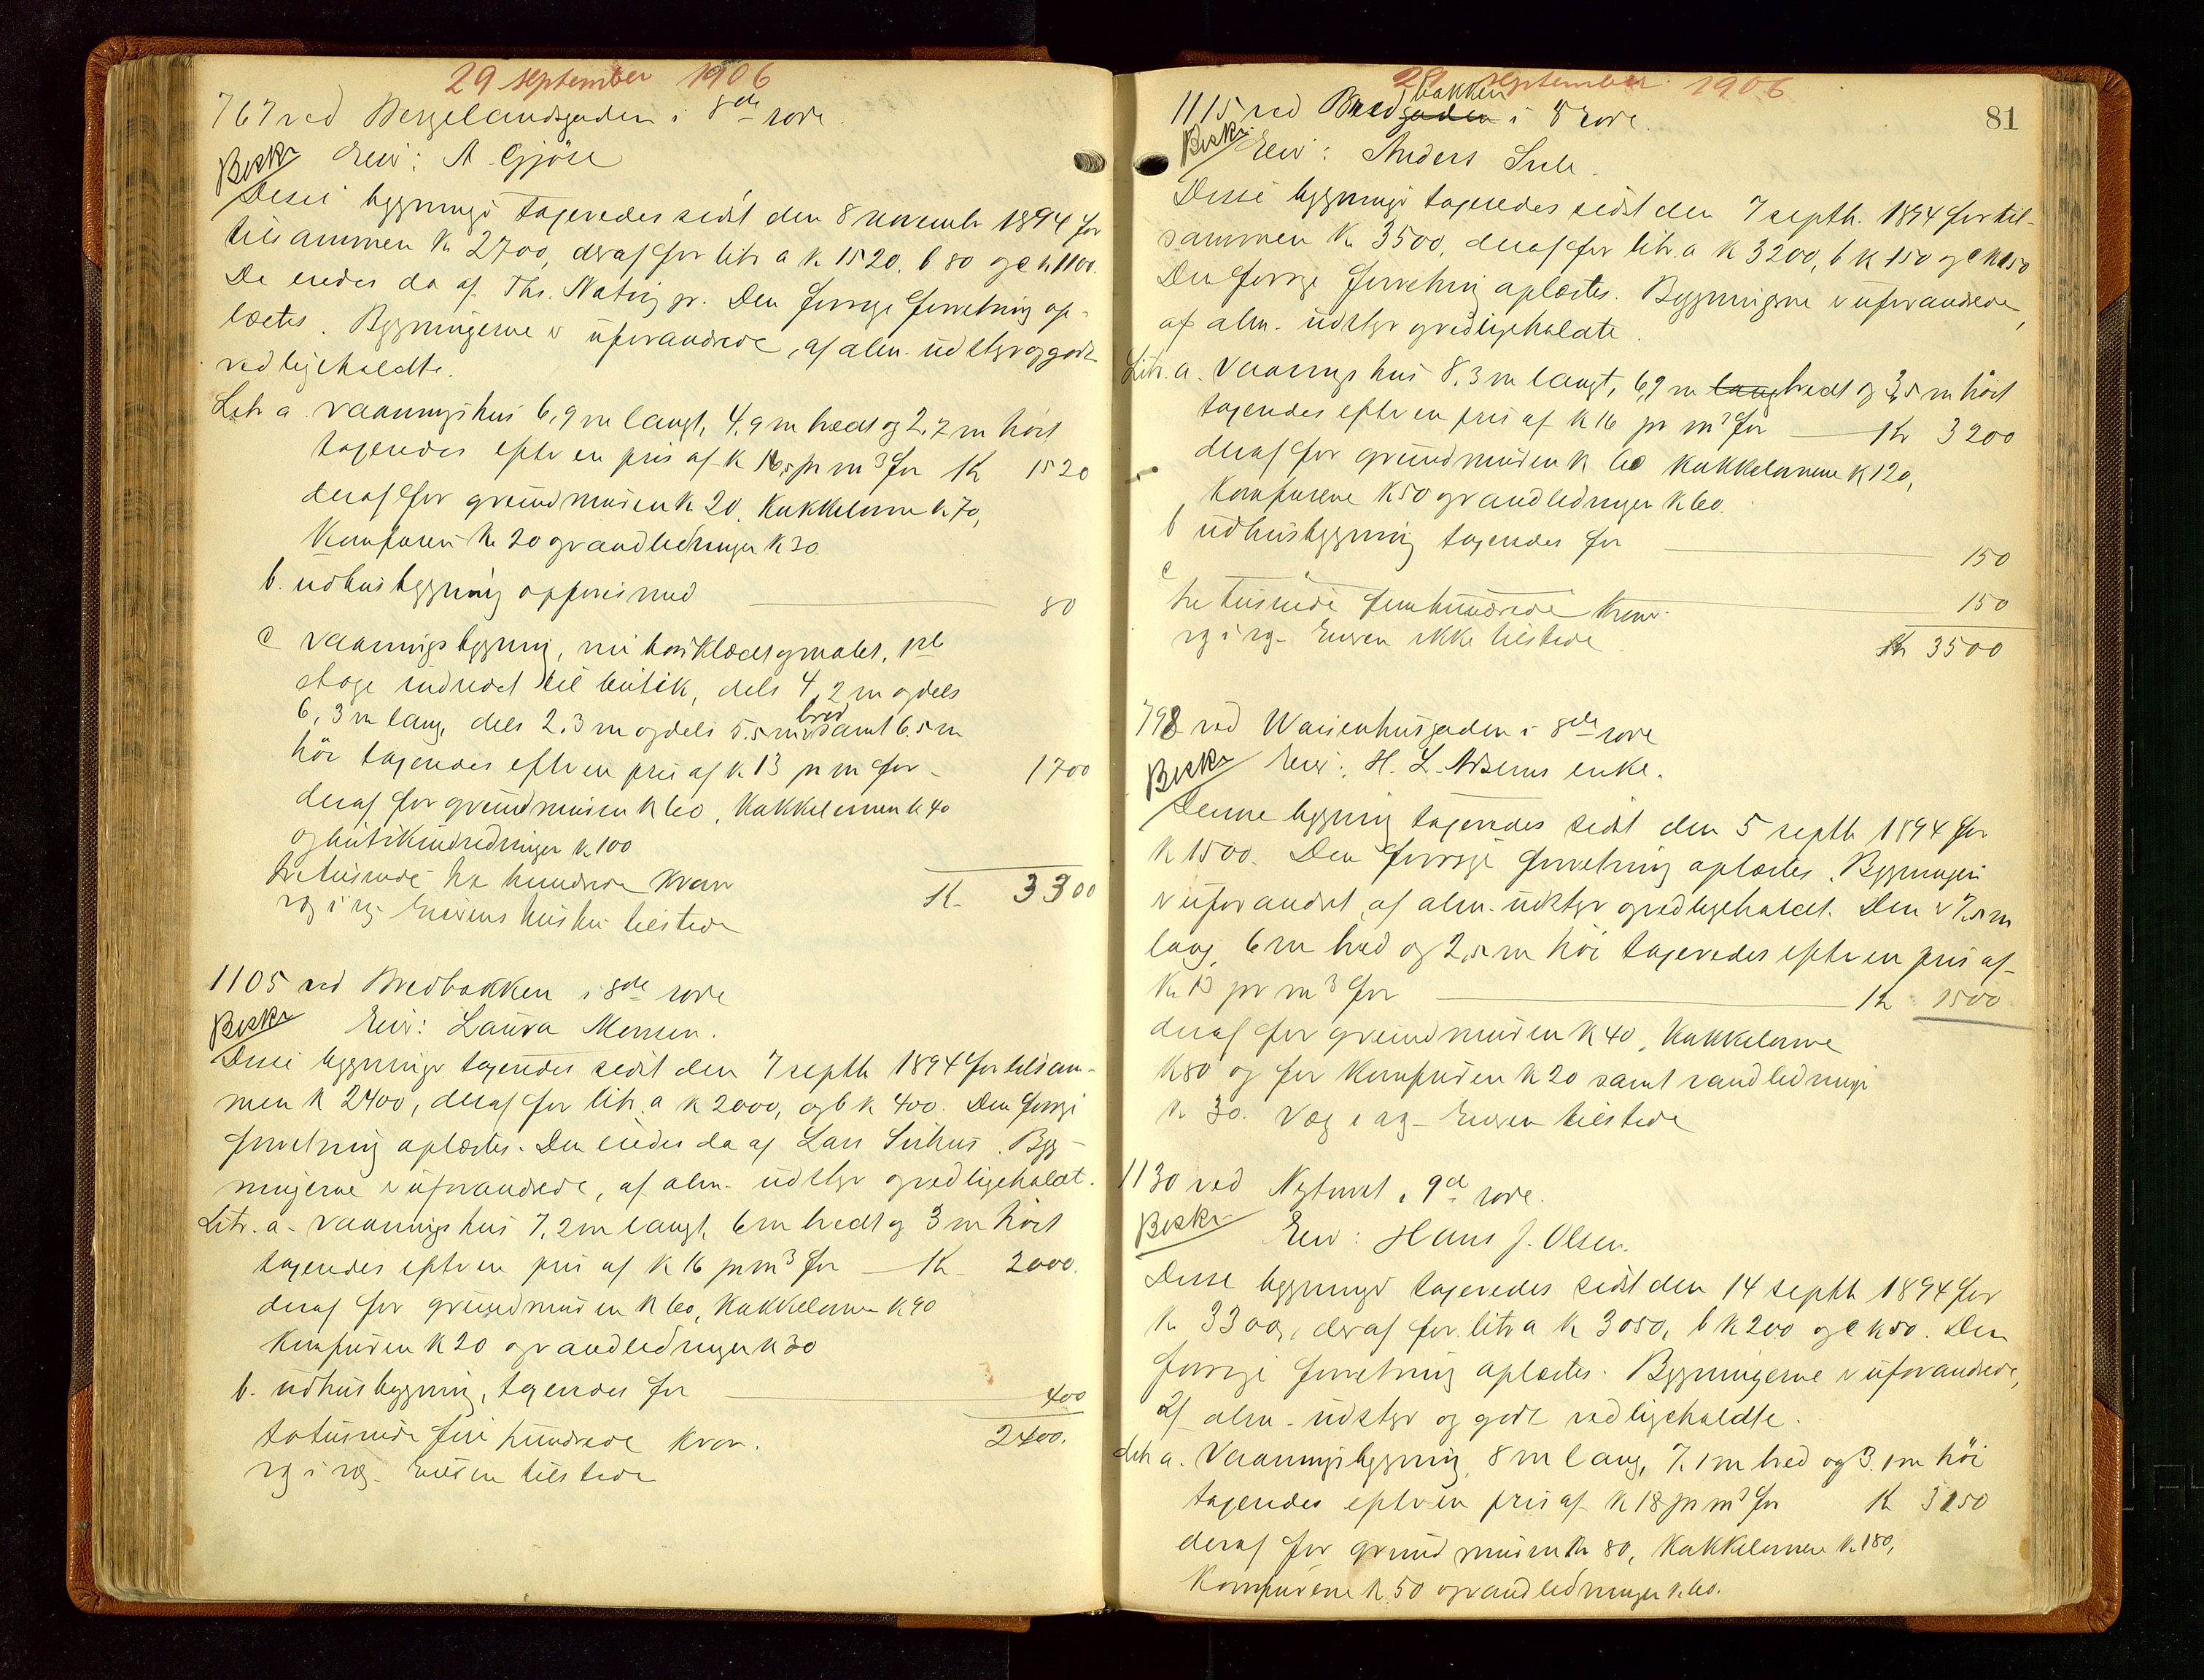 29 september 1906
767 ved Bergelandsgaden i 8de rode
Beskr Eier: A Gjöse
Disse bygninger taxeredes sidst den 8 novembr 1894 for
tilsammen Kr 2700, deraf for litr a k 1520, b 80 og c kr 1100.
De eiedes da af Ths. Natvig jr. Den forrige forretning op-
læstes. Bygningerne er uforandrede, af alm. udstyr og godt
vedligeholdte.
Litr a vaaningshus 6,9 m langt, 4,9 m bredt og 2,7 m höit
taxeredes efter en pris af k 16,5 pr m3 for Kr 1520
deraf for grundmuren k 20, Kakkelovne k 70,
Komfuren kr 20 og vandledninger k 30
b. udhusbygning opført med 80
c vaaningsbygning, nu bordklædt og malet, 1ste
etage indredet til butik, dels 4,2 m og dels
6,3 m lang, dels 2.3 m og dels 5.5 m bred samt 6,5 m
höi taxeredes efter en pris af k 13 pr m for 1700
deraf for grundmuren k 60, Kakkelovnen k 40
og butikindredninger k 100
tretusinde tre hundrede Kroner Kr 3300
og i og. Eierens hustru tilstede
1105 ved Bredbakken i 8de rode
Beskr Eier: Laura Monsen.
Disse bygninger taxeredes sidst den 7 septbr 1894 for tilsam-
men k 2400, deraf for litr. a k 2000, og b k 400. Den forrige
forretning oplæstes. Den eiedes da af Lars Sirhus. Byg-
ningerne er uforandrede, af alm. udstyr og vedligeholdt.
Litr. a. vaaningshus 7,2 m langt, 6 m bredt og 3 m höit
taxeredes efter en pris af k 16 pr m3 for Kr 2000.
deraf for grundmuren k 60, Kakkelovne k 90
Komfuren k 20 og vandledninger k 30
b. udhusbygning, taxeredes for 400
totusinde fire hundrede Kroner. 2400.
og i og. Eieren tilstede
29 september 1906
81
1115 ved Bredgaden bakken i 8 rode.
Beskr. Eier: Anders Sele.
Disse bygninger taxeredes sidst den 7 septbr. 1894 for til-
sammen k 3500, deraf for litr. a k 3200, b k 150 og c k 150
Den forrige forretning oplæstes. Bygningerne er uforandrede,
af alm. udstyr og vedligeholdte.
Litr. a. Vaaningshus 8,3 m langt, 6,9 m lang bredt og 3,5 m höit
taxeredes efter en pris af k 16 pr m3 for Kr 3200
deraf for grundmuren k 60 Kakkelovnene k 120,
Komfurene k 50 og vandledninger k 60.
b udhusbygning taxeredes for 150
c 150
tre tusinde femhundrede kroner. Kr 3500
og i og. Eieren ikke tilstede
798 ved Waisenhusgaden i 8de rode
Beskr Eier: H. L. enke.
Denne bygning taxeredes sidst den 5 septbr 1894 for
k 1500. Den forrige forretning oplæstes. Bygningen
er uforandret, af alm. udstyr og vedligeholdt. Den er 7,5 m
lang, 6 m bred og 2,5 m höi taxeredes efter en pris af
Kr 13 pr m3 for Kr 1500
deraf for grundmuren k 40, Kakkelovne
k 80 og for Komfuren k 20 samt vandledninger
k 30. Og i og. Eieren tilstede
1130 ved Nytorvet i 9de rode.
Beskr. Eier: Hans J. Olsen.
Disse bygninger taxeredes sidst den 14 septbr 1894 for
k 3300, deraf for litr a k 3050, b k 200 og c k 50. Den
forrige forretning oplæstes. Bygningerne er uforandrede,
af alm. udstyr og godt vedligeholdte.
Litr a. Vaaningsbygning, 8 m lang, 7,1 m bred og 3,1 m höi
taxeredes efter en pris af k 18 pr m3 for Kr 3150
deraf for grundmuren kr 80, Kakkelovnene k. 180,
Komfurene k 50 og vandledninger k 60.